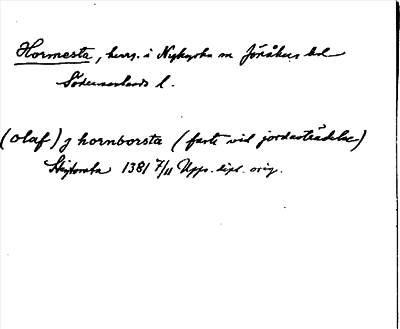 Hormesta, herrg. i Nykyrka sn Jönåkers hd
Södermanlands l.
(Olaf) j hornborsta (faste vid jordaträdelse)
1381 7/11 Upps. dipl. orig.